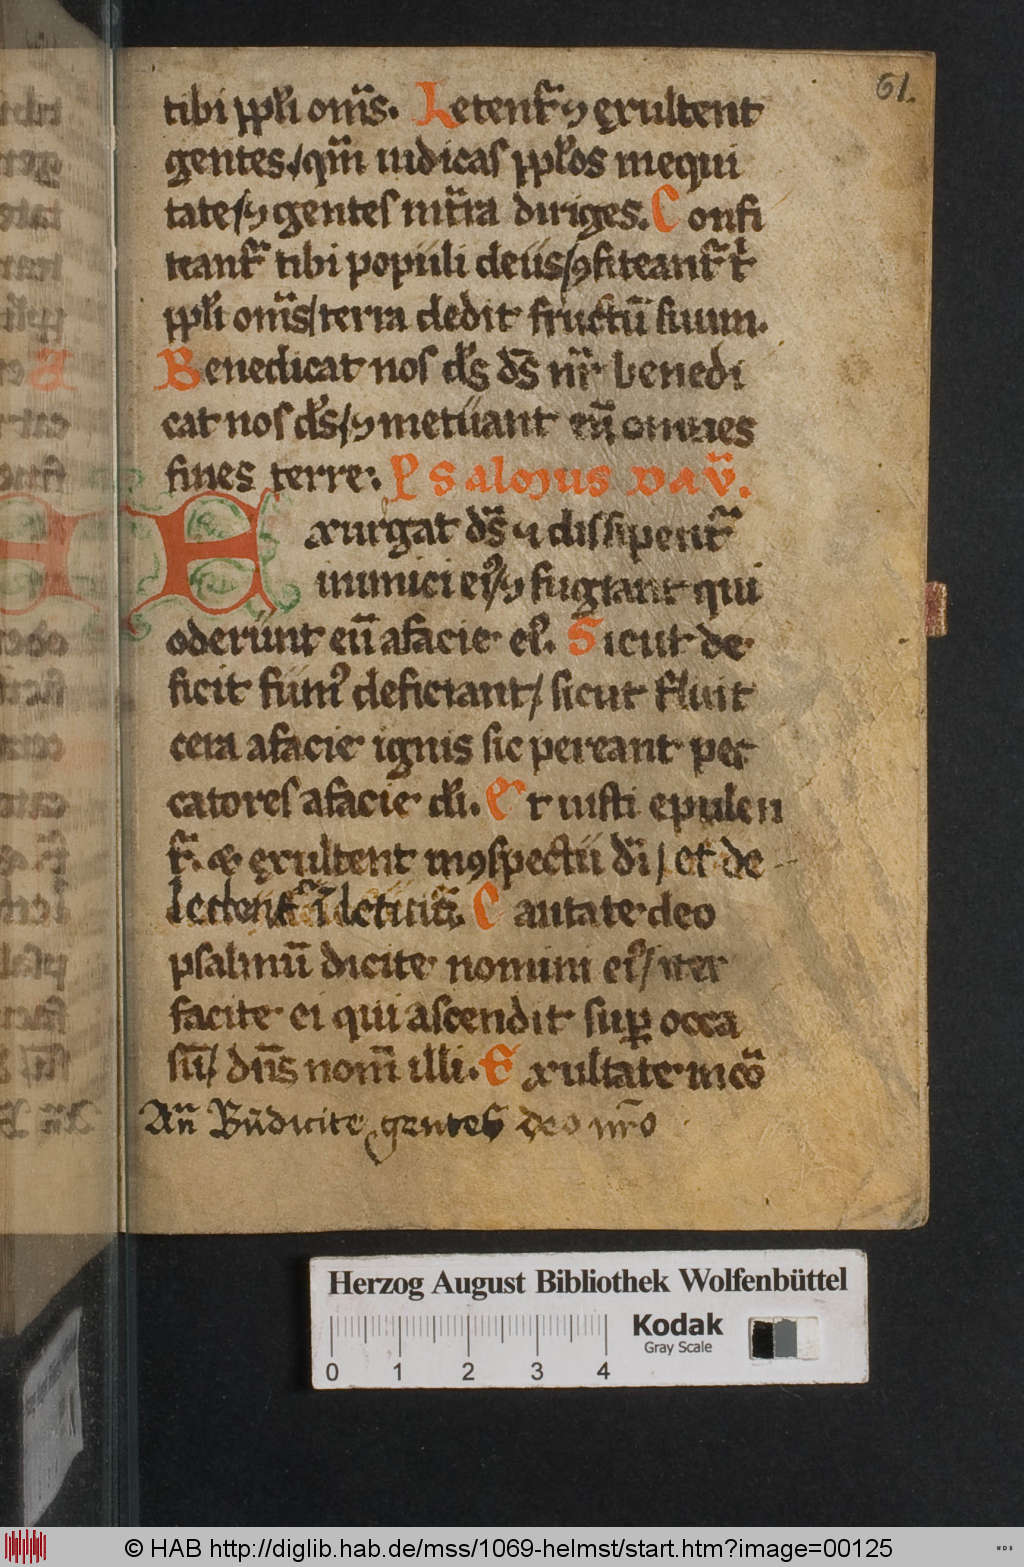 61.
tibi ppl̄i om̄s. Letent᷑ ⁊ ęxultent
gentes / qm̄ iudicas ppl̄os inequi
tate / ⁊ gentes int̄ra diriges. Confi
teant᷑ tibi populi deus / ꝯfiteant᷑ t̄
ppl̄i om̄s / terra dedit fructū suum.
Benedicat nos ds̄ ds̄ nr̄ benedi
cat nos ds̄ / ⁊ metuant eū omnes
fines terre: Psalmus dav̄.
Exurgat ds̄ ⁊ dissipent᷑
inimici eiꝰ / ⁊ fugiant qui
oderunt eū afacie eiꝰ. Sicut de
ficit fumꝰ deficiant / sicut fluit
cera afacie ignis sic pereant pec
catores afacie di̅. Et iusti epulen
t᷑. & ęxultent inꝯspectu di̅ / et de
lectent᷑ ī leticia. Cantate deo
psalmū dicite nomini eiꝰ / iter
facite ei qui ascendit suꝑ occa
sū / dn̄s nom̄ illi. Exultate incō
An̄ Bn̄dicite gentes deo nr̄o
Herzog August Bibliothek Wolfenbüttel
Kodak
Gray Scale
0 1 2 3 4
© HAB http://diglib.hab.de/mss/1069-helmst/start.htm?image=00125